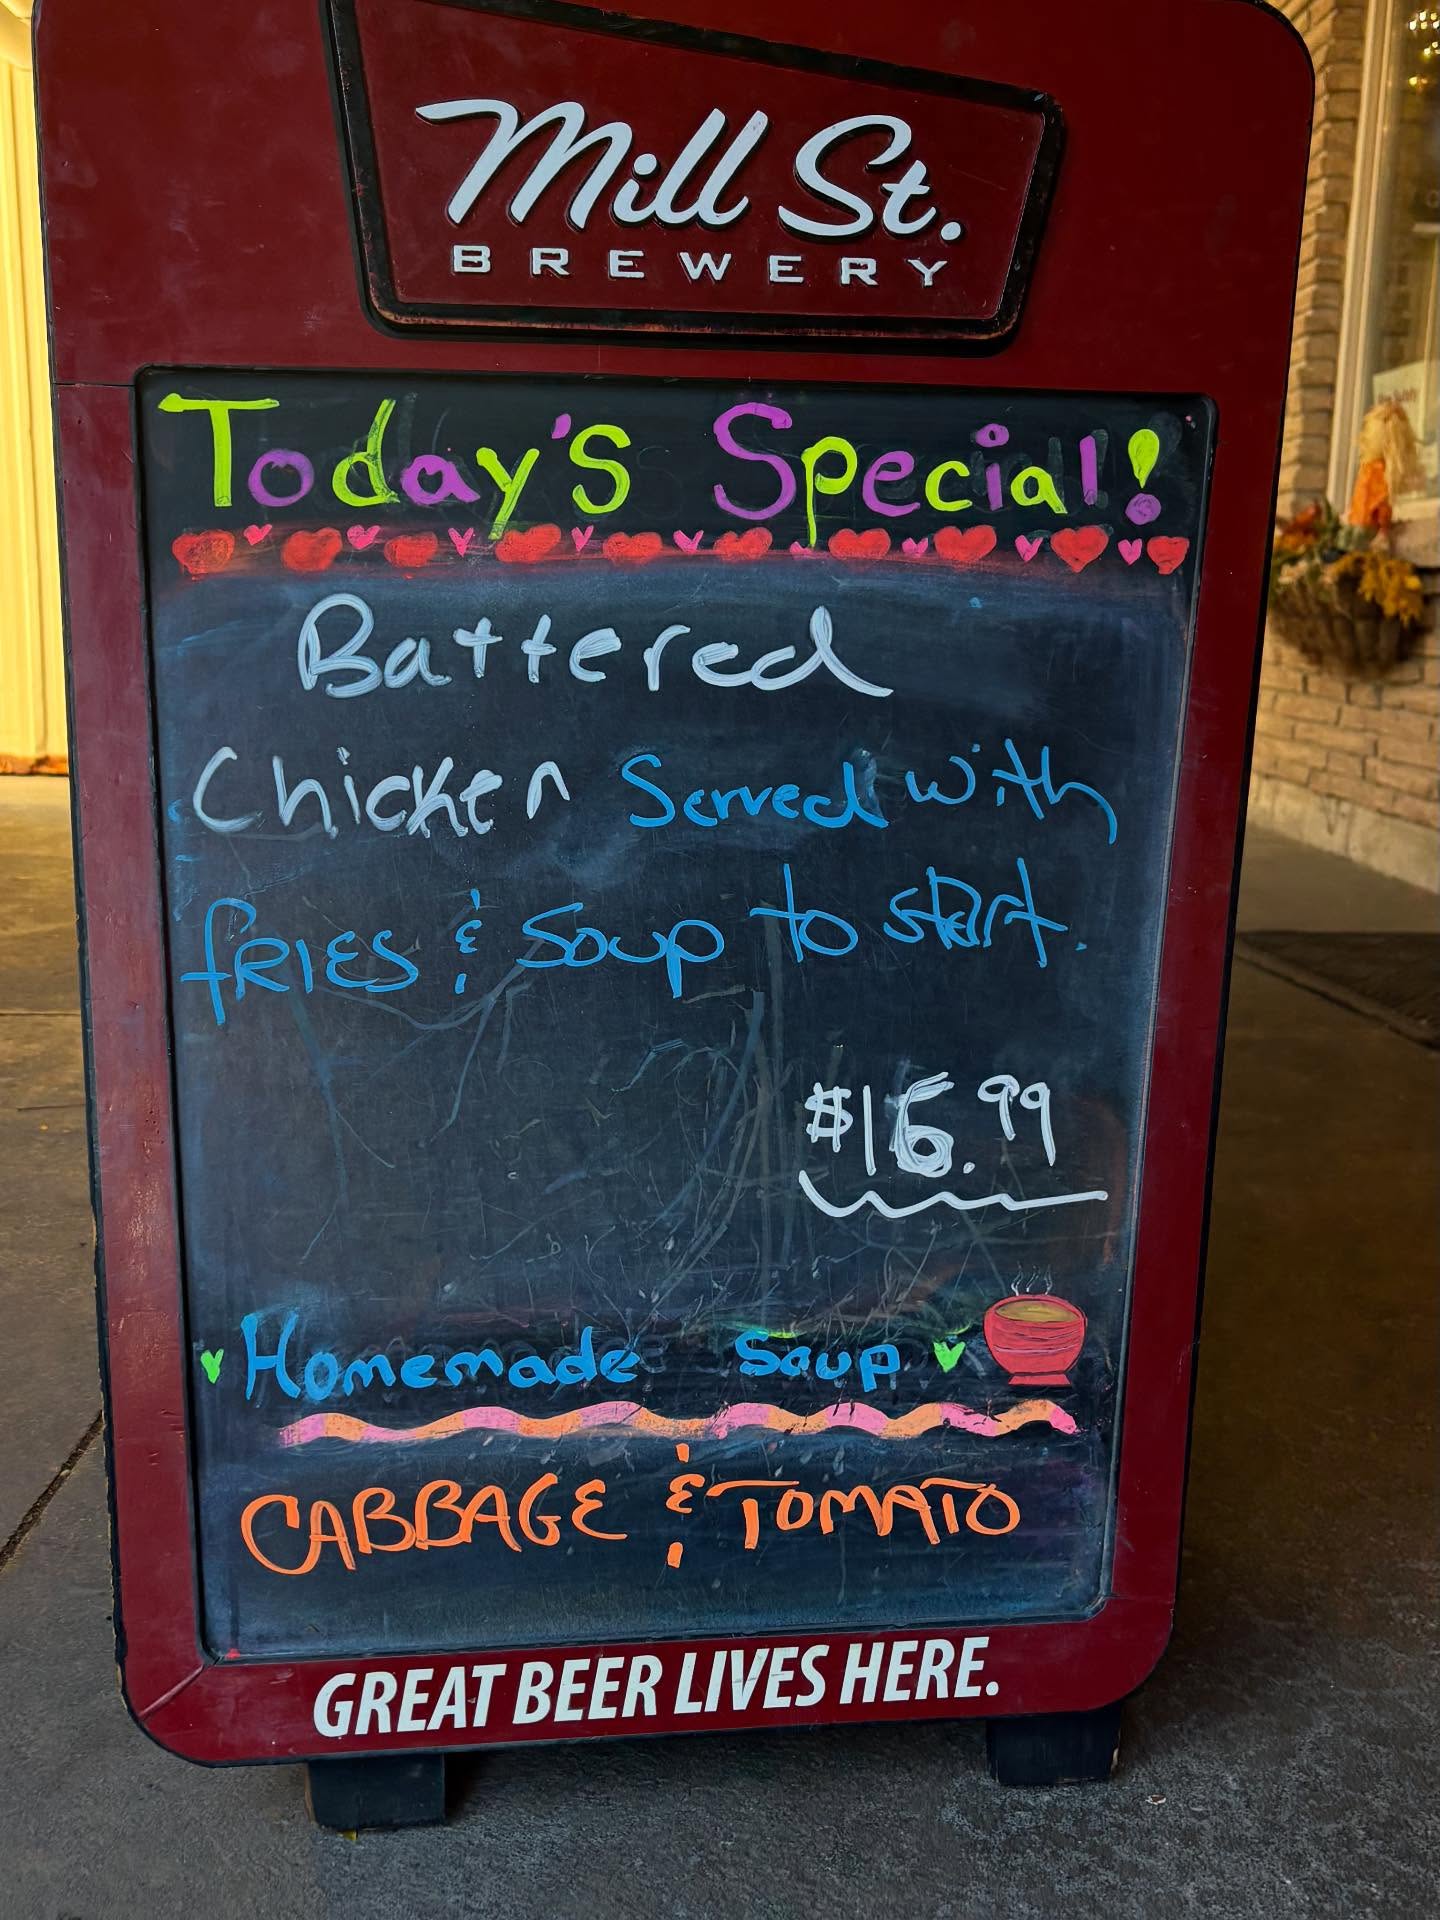 Mill St.
BREWERY
Today's Special!
Battered
Chicken Served with
fRIES & Soup to start.
$16.99
Homemade Soup
CABBAGE & TOMATO
GREAT BEER LIVES HERE.